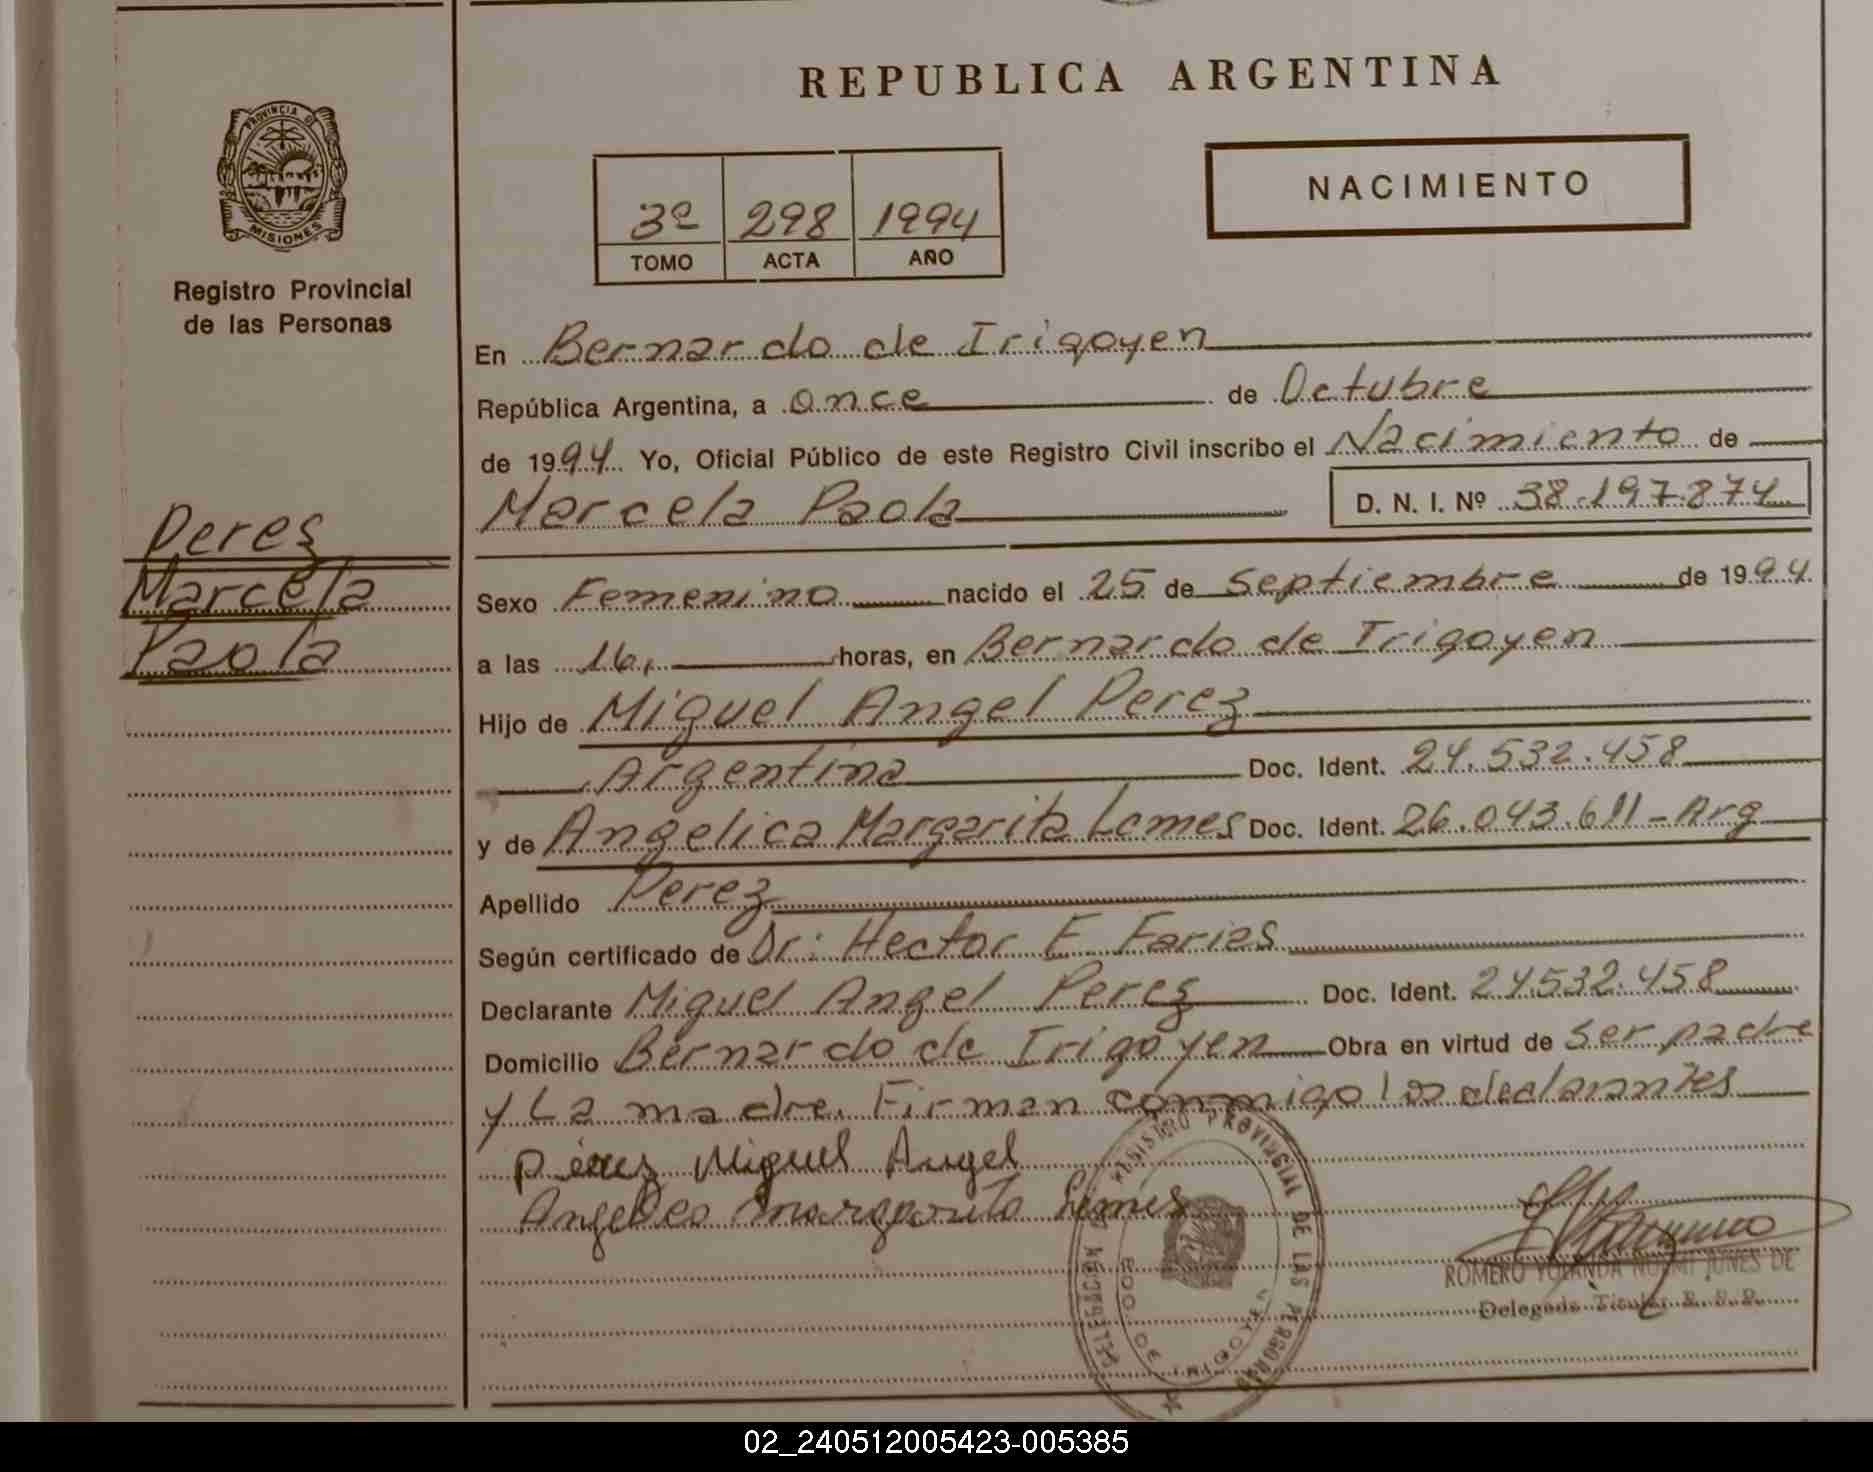 REPUBLICA ARGENTINA
PROVINCIA DE
MISIONES
Registro Provincial
de las Personas
3º 298 1994
TOMO ACTA AÑO
NACIMIENTO
En Bernardo de Irigoyen
República Argentina, a once de Octubre
de 1994 Yo, Oficial Público de este Registro Civil inscribo el Nacimiento de
Marcela Paola D. N. I. Nº 38.197.874
Perez
Marcela
Paola
Sexo Femenino nacido el 25 de Septiembre de 1994
a las 16, horas, en Bernardo de Irigoyen
Hijo de Miguel Angel Perez
Argentina Doc. Ident. 24.532.458
y de Angelica Margarita Lemes Doc. Ident. 26.043.611-Arg
Apellido Perez
Según certificado de Dr: Hector E Farias
Declarante Miguel Angel Perez Doc. Ident. 24.532.458
Domicilio Bernardo de Irigoyen Obra en virtud de ser padre
y La madre. Firman conmigo los declarantes
Miguel Angel
margarita Lemes
REGISTRO PROVINCIAL DE LAS PERSONAS
BDO. DE IRIGOYEN
ROMERO YOLANDA NOEMI JUNES DE
Delegada Titular R. P. P.
02_240512005423-005385